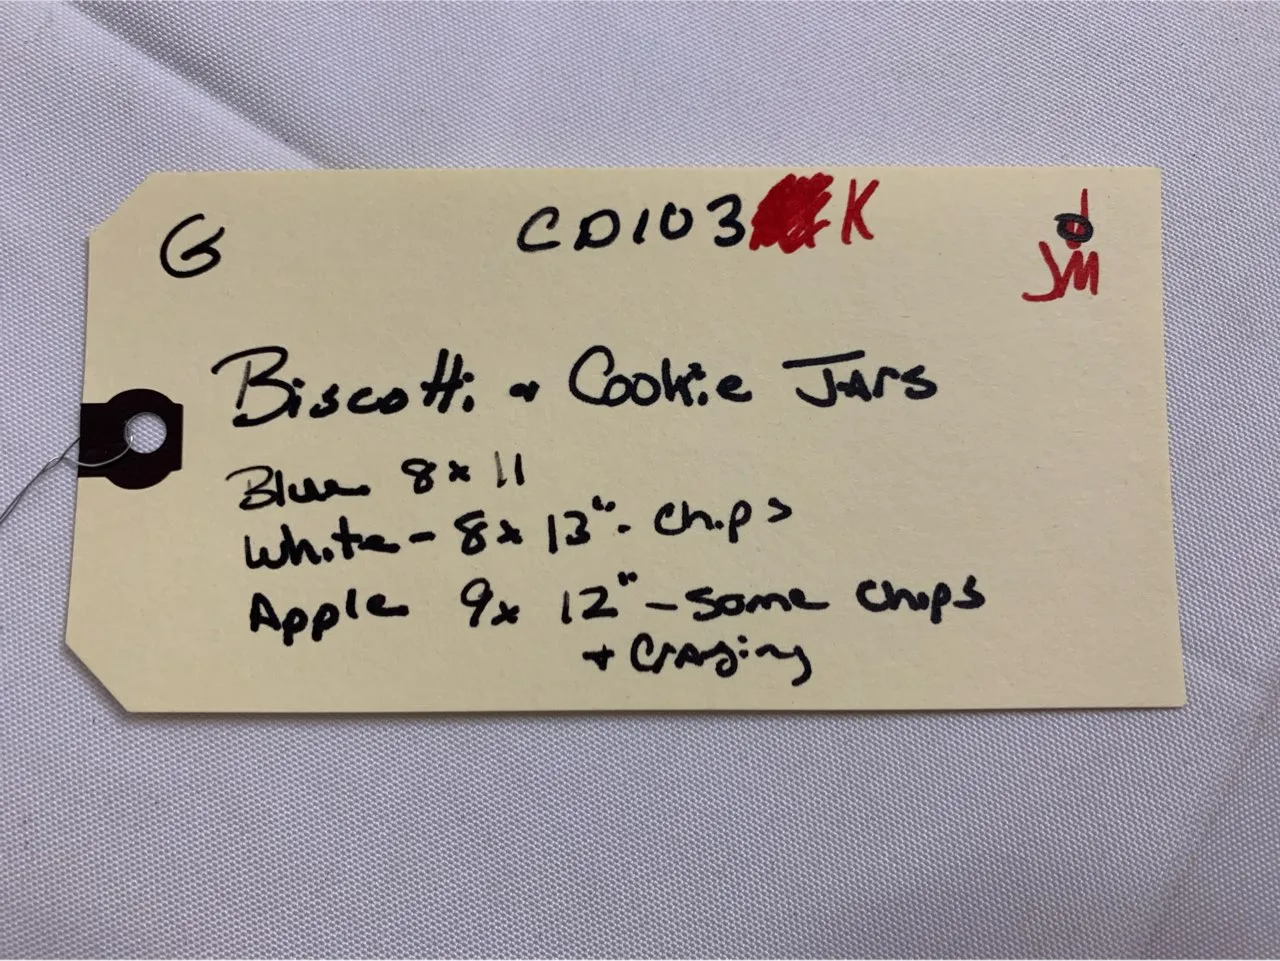 G CD103 K
JM
Biscotti + Cookie Jars
Blue 8x11
White - 8x13" - chips
Apple 9x12" - some chips
+ Crazing